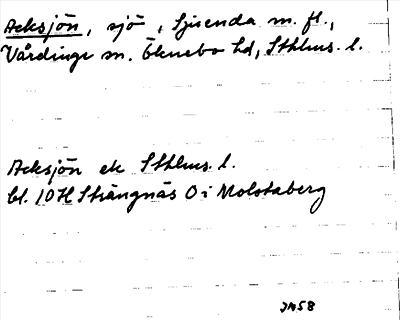 Acksjön, sjö, Ljusenda m. fl.,
Vårdinge sn. Öknebo hd, Sthlms. l.
Acksjön ek Sthlms. l.
bl. 10H Strängnäs O i Molstaberg
JM58